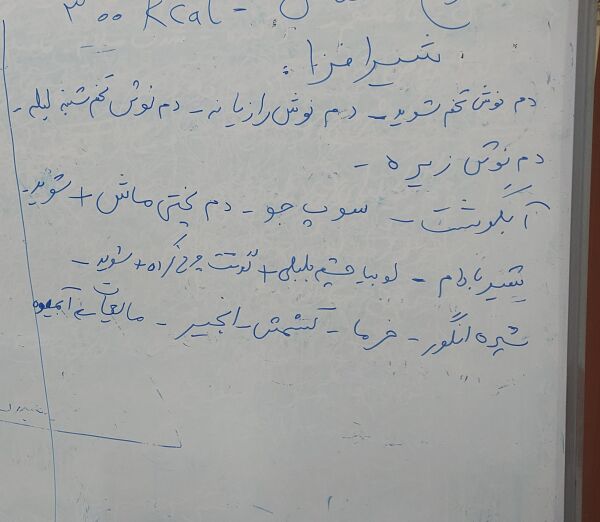 ۳۰۰ Kcal -
شیر افزا :
دم نوش تخم شوید - دم نوش رازیانه - دم نوش تخم شنبه لیله -
دم نوش زیره -
آبگوشت - سوپ جو - دم پختی ماش + شوید -
شیر بادام - لوبیا چشم بلبلی + گوشت چرخ کرده + شوید -
شیره انگور - خرما - کشمش - انجیر - مایعات آبمیوه